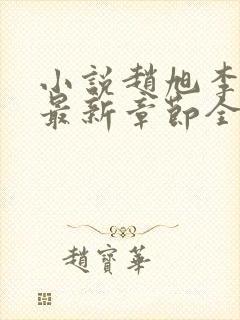 小説趙旭李
最新章節全
趙寶華